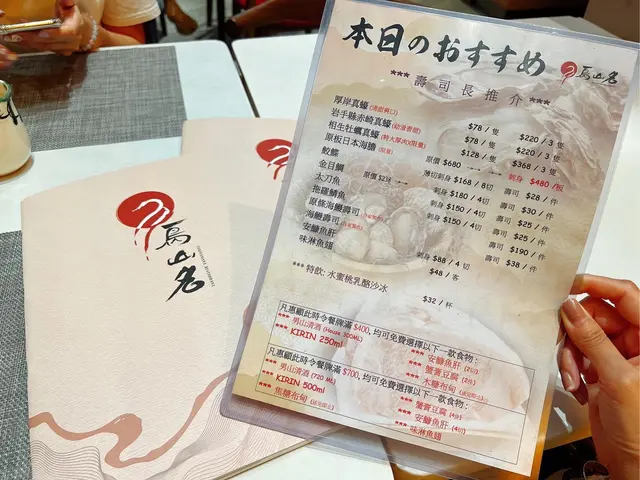 本日のおすすめ
山名
*** 壽司長推介 ***
厚岸真蠔 (清甜爽口) $78 / 隻 $220 / 3 隻
岩手縣赤崎真蠔 (幼滑香甜) $78 / 隻 $220 / 3 隻
相生牡蠣真蠔 (特大厚肉)(限量) $128 / 隻 $368 / 3 隻
原板日本海膽 (限量) 原價 $680 刺身 $480 / 板
鮫鰈 薄切刺身 $168 / 8切 壽司 $28 / 件
金目鯛 原價 刺身 $180 / 4切 壽司 $30 / 件
太刀魚 刺身 $150 / 4切 壽司 $25 / 件
拖羅鯖魚 刺身 $150 / 4切 壽司 $25 / 件
原條海鰻壽司 壽司 $190 / 件
海鰻壽司 壽司 $38 / 件
安鱇魚肝 刺身 $88 / 4切
味淋魚翅 $48 / 客
*** 特飲: 水蜜桃乳酪沙冰 $32 / 杯
凡惠顧此時令餐牌滿 $400, 均可免費選擇以下一款食物 :
*** 男山清酒 (House 300ML) *** 安鱇魚肝 (2切)
*** KIRIN 250ml *** 蟹膏豆腐 (2件)
*** 木糖布甸
凡惠顧此時令餐牌滿 $700, 均可免費選擇以下一款食物 :
*** 男山清酒 (720 ML) *** 蟹膏豆腐 (4件)
*** KIRIN 500ml *** 安鱇魚肝 (4切)
*** 焦糖布甸 *** 味淋魚翅
山名